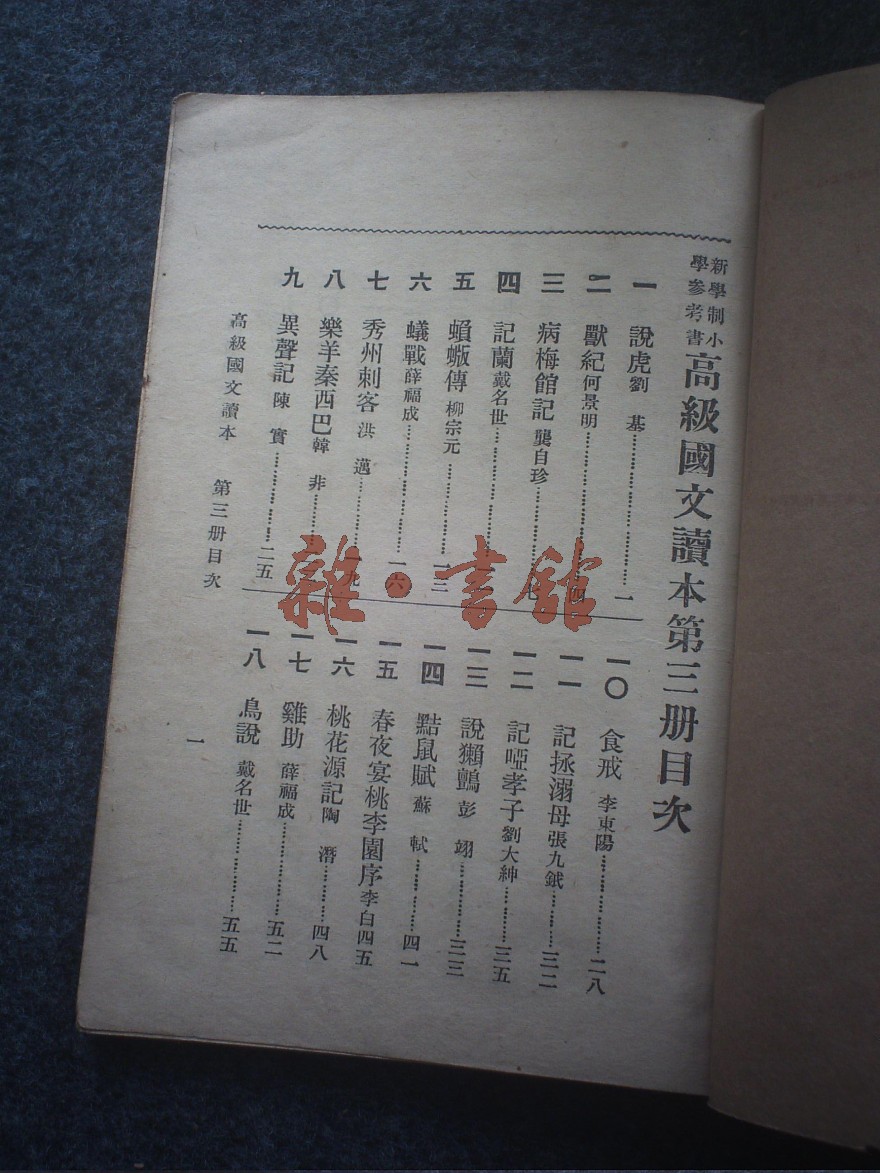 新學制小
學參考書
高級國文讀本第三册目次
一 說虎 劉 基……………………一
二 獸紀 何景明……………………四
三 病梅館記 龔自珍……………………七
四 記蘭 戴名世……………………
五 蝜蝂傳 柳宗元……………………一三
六 蟻戰 薛福成……………………一六
七 秀州刺客 洪 邁……………………一九
八 樂羊秦西巴 韓 非……………………
九 異聲記 陳 實……………………二五
一〇 食戒 李東陽……………………二八
一一 記拯溺母 張九鉞……………………三二
一二 記啞孝子 劉大紳……………………三五
一三 說獺 彭 翊……………………三三
一四 黠鼠賦 蘇 軾……………………四一
一五 春夜宴桃李園序 李白 四五
一六 桃花源記 陶 潛……………………四八
一七 雞助 薛福成……………………五二
一八 鳥說 戴名世……………………五五
高級國文讀本 第三册目次
一
雜·書館